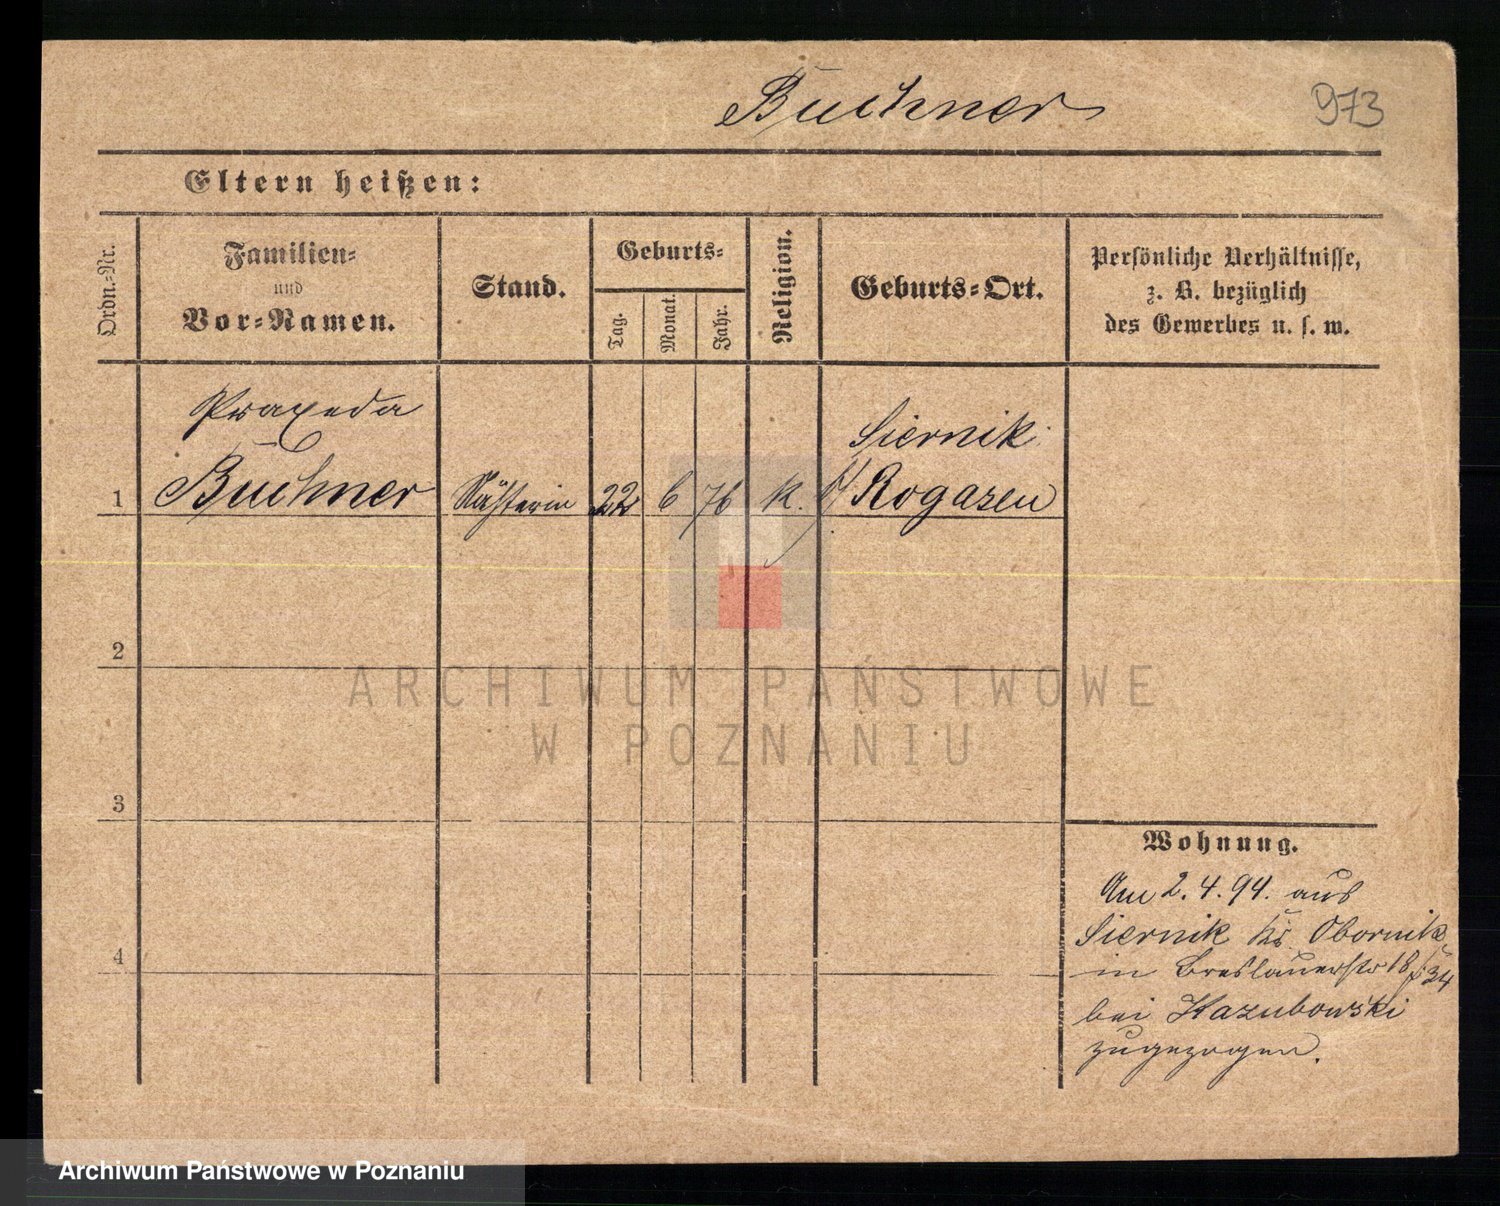 Buchner
973
Eltern heißen:
Ordn.-Nr.
Familien-
und
Vor-Namen.
Stand.
Geburts-
Tag.
Monat.
Jahr.
Religion.
Geburts-Ort.
Persönliche Verhältnisse,
z. B. bezüglich
des Gewerbes u. s. w.
Praxeda
Siernik
1 Buchner Nähterin 22 6 76 k. b/ Rogasen
2
3
4
Wohnung.
Am 2.4.94. aus
Siernik Krs. Obornik
in Breslauerstr 18/ 34
bei Kazubowski
zugezogen.
ARCHIWUM PAŃSTWOWE
W POZNANIU
Archiwum Państwowe w Poznaniu